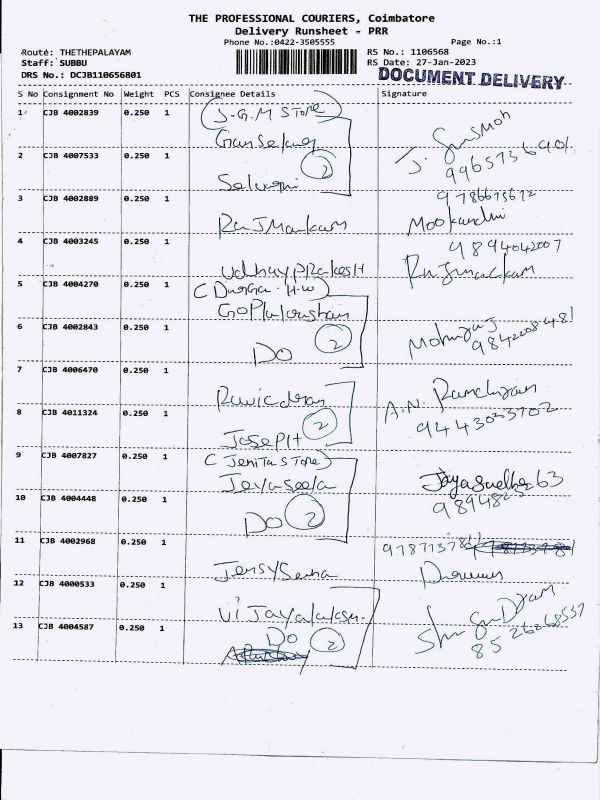 THE PROFESSIONAL COURIERS, Coimbatore
Delivery Runsheet - PRR
Phone No.:0422-3505555
Page No.:1
Route: THETHEPALAYAM
RS No.: 1106568
Staff: SUBBU
RS Date: 27-Jan-2023
DRS No.: DCJB110656801
DOCUMENT DELIVERY
S No Consignment No Weight PCS Consignee Details Signature
1 CJB 4002839 0.250 1 (J.G.M STORE)
2 CJB 4007533 0.250 1 2
9786675672
3 CJB 4002889 0.250 1
4 CJB 4003245 0.250 1 9894042007
UdhayPRakesH
5 CJB 4004270 0.250 1 (Durga. H.W)
6 CJB 4002843 0.250 1 2 9842208481
DO
7 CJB 4006470 0.250 1
8 CJB 4011324 0.250 1 2 9443033702
JosePH
9 CJB 4007827 0.250 1 (Jenita STore)
Jeyaseela
10 CJB 4004448 0.250 1
DO 2
11 CJB 4002968 0.250 1
12 CJB 4000533 0.250 1
13 CJB 4004587 0.250 1 DO 2 8526268537